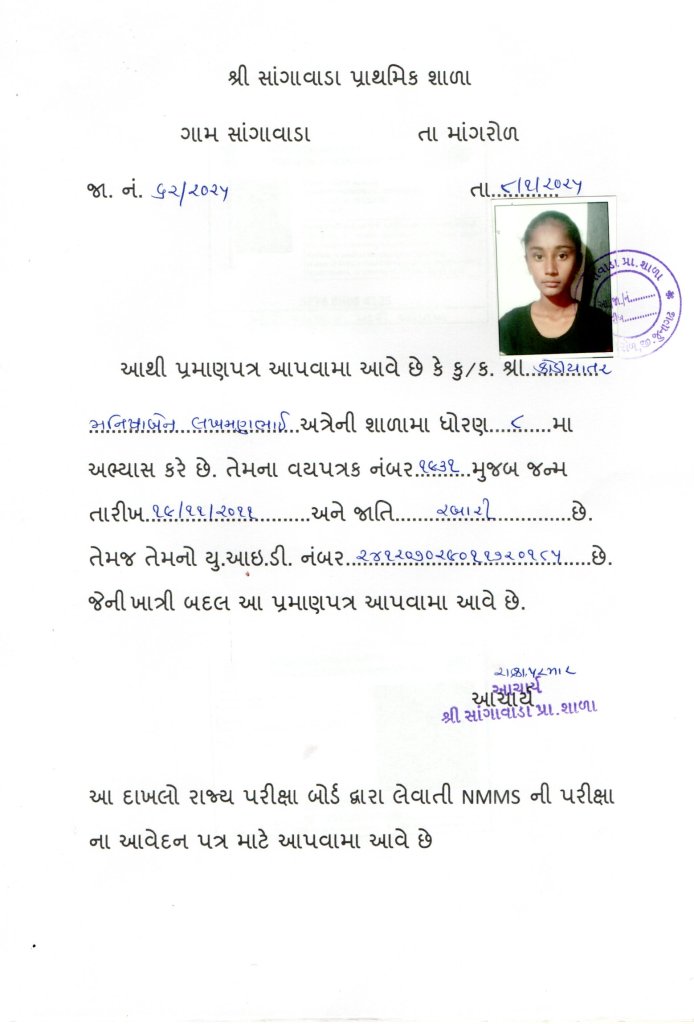 શ્રી સાંગાવાડા પ્રાથમિક શાળા
ગામ સાંગાવાડા તા માંગરોળ
જા. નં. ૬૨/૨૦૨૫ તા. ૮/૧/૨૦૨૫
આથી પ્રમાણપત્ર આપવામા આવે છે કે કુ/ક. શ્રી. કોડીયાતર
મનિષાબેન લખમણભાઈ અત્રેની શાળામા ધોરણ ૮ મા
અભ્યાસ કરે છે. તેમના વયપત્રક નંબર ૧૯૩૧ મુજબ જન્મ
તારીખ ૧૯/૧૧/૨૦૧૧ અને જાતિ રબારી છે.
તેમજ તેમનો યુ.આઇ.ડી. નંબર છે.
જેની ખાત્રી બદલ આ પ્રમાણપત્ર આપવામા આવે છે.
આચાર્ય
આચાર્ય
શ્રી સાંગાવાડા પ્રા.શાળા
આ દાખલો રાજ્ય પરીક્ષા બોર્ડ દ્વારા લેવાતી NMMS ની પરીક્ષા
ના આવેદન પત્ર માટે આપવામા આવે છે